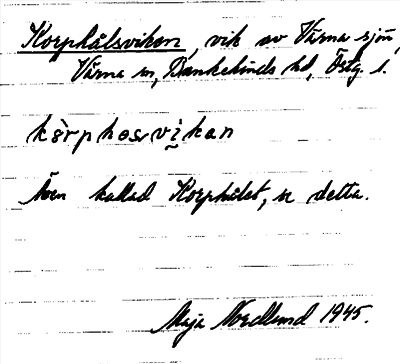 Korphålsviken, vik av Värna sjön,
Värna sn, Bankekinds hd, Östg. l.
kòrphosvikan
Även kallad Korphålet, se detta.
Maja Nordlund 1945.